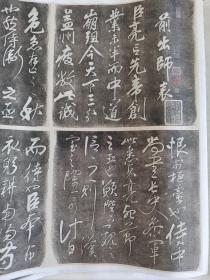 前出師表
臣亮言先帝創
業未半而中道
崩殂今天下三分
益州疲敝此誠
危急存亡之秋
也然侍衛之臣
恨於桓靈也侍中
尚書長史參軍
此悉貞亮死節
之臣也願陛下親之
信之則漢
室之隆可計日
而待也臣本布
衣躬耕南陽苟